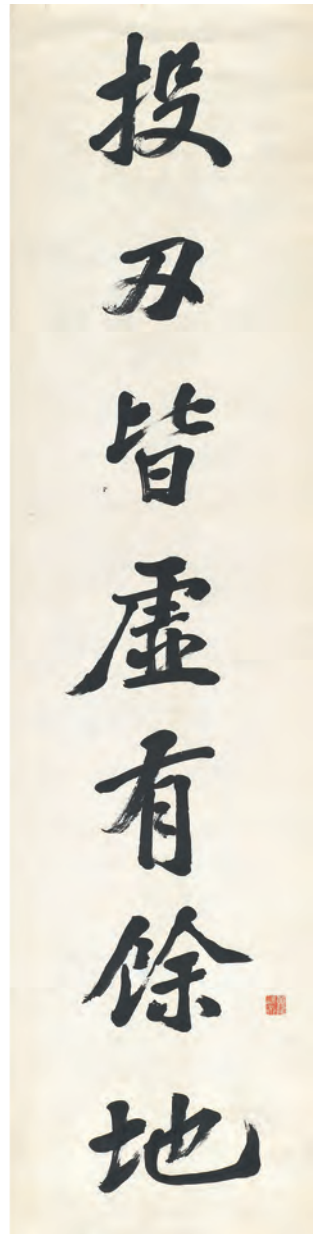 投刃皆虚有餘地